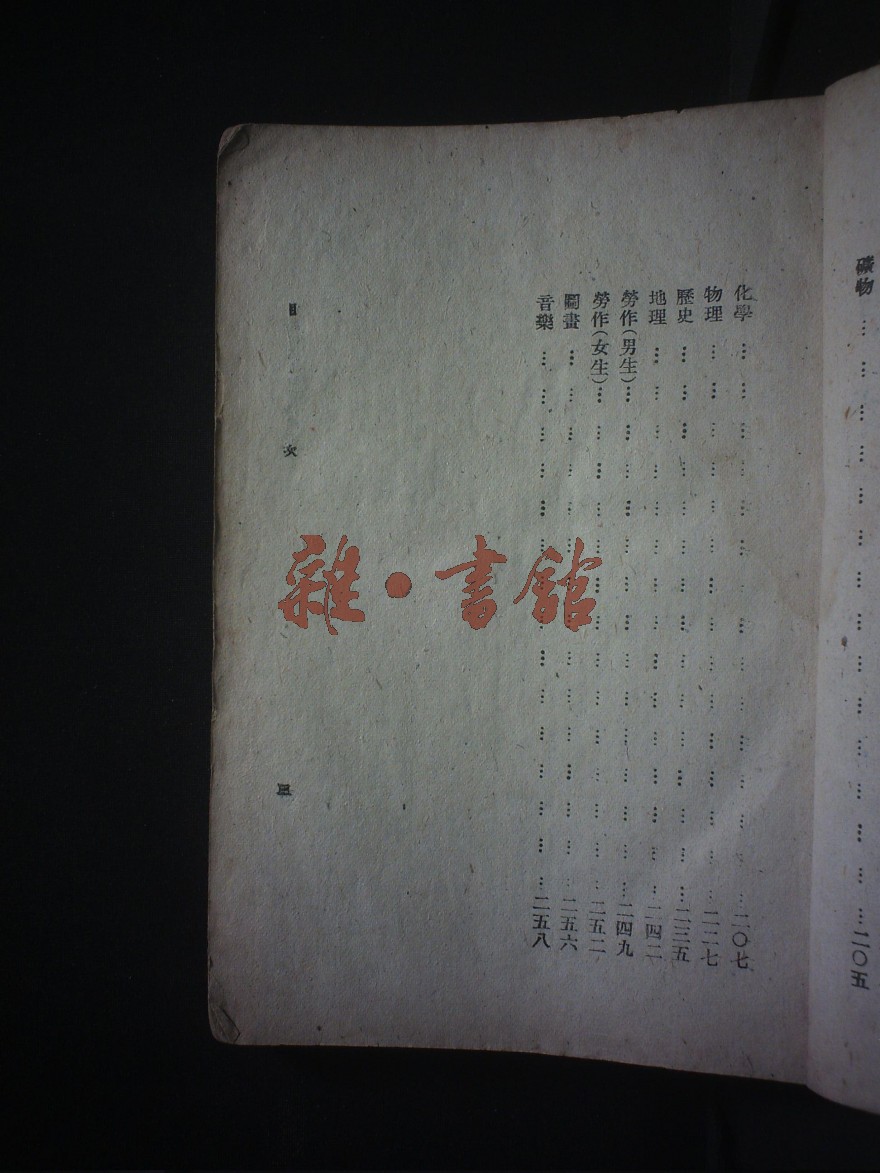 礦物………………………………………二〇五
化學………………………………………二〇七
物理………………………………………二二七
歷史………………………………………二三五
地理………………………………………二四二
勞作(男生)………………………………………二四九
勞作(女生)………………………………………二五二
圖畫………………………………………二五六
音樂………………………………………二五八
目次 三
雜·書館